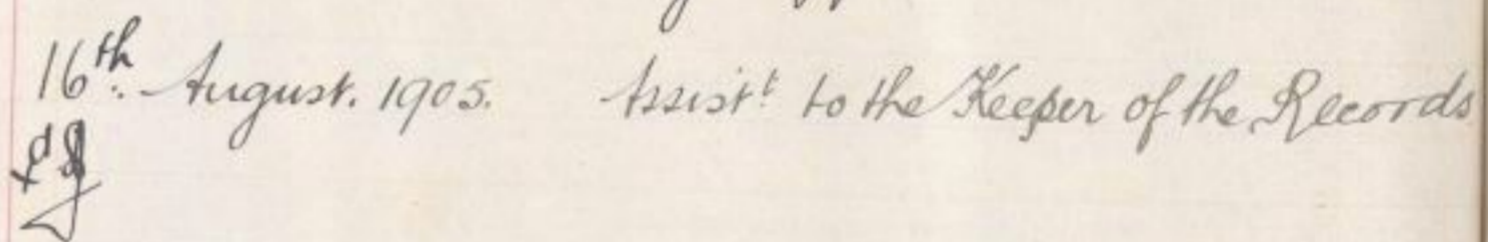 16th. August. 1905. Assist.t to the Keeper of the Records